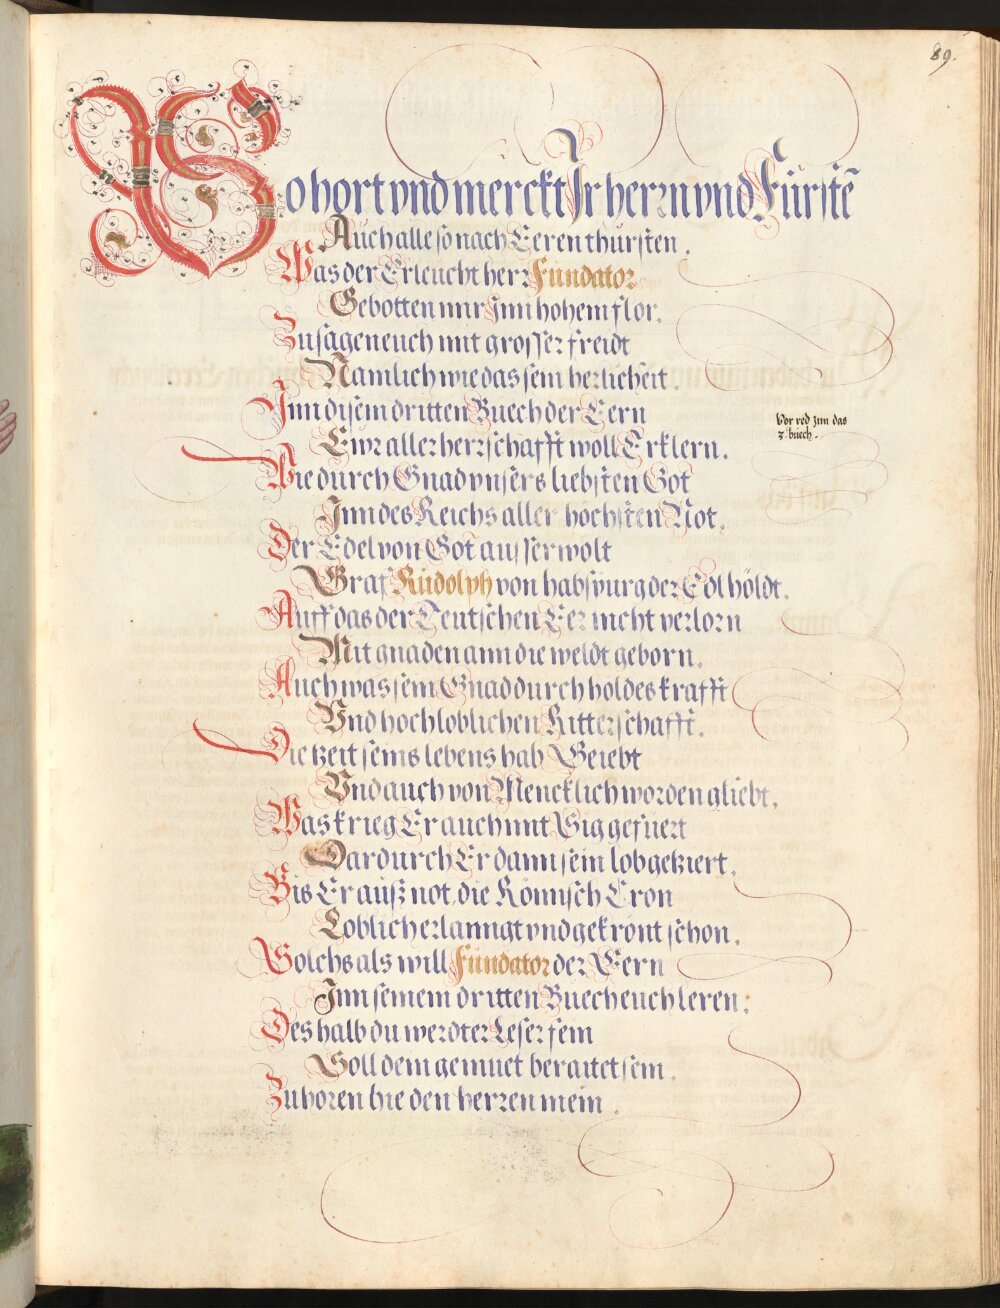 89.
So hort vnd merckt Ir herrn vnd Fürstē
Auch alle so nach Eeren thürsten.
Was der Erleucht herr Fundator
Gebotten mir Inn hohem flor.
Zu sagen euch mit grosser freidt
Namlich wie das sein herlicheit.
Inn disem dritten Buech der Eern
Ewr aller herrschafft woll Erklern.
Vor red Jnn das
3. buech.
Wie durch Gnad vnsers liebsten Got
Inn des Reichs aller hochsten Not.
Der Edel von Got ausserwolt
Graf Rüdolph von habspurg der Edl höldt.
Auff das der Teutschen Eer nicht verlorn
Mit gnaden ann die weldt geborn.
Auch was sein Gnad durch holdes krafft
Vnd hochloblichen Ritterschafft.
Die zeit seins lebens hab Geiebt
Vnd auch von Mencklich worden gliebt.
Was krieg Er auch mit Sig gefuert
Dardurch Er dann sein lob geziert.
Bis Er auß not die Römisch Cron
Loblich erlanngt vnd gekrönt schon.
Solchs als will Fundator der Eern
Inn seinem dritten Buech euch leren:
Deshalb du werdter Leser fein
Soll dein gemuet beraitet sein.
Zu horen hie den herren mein.